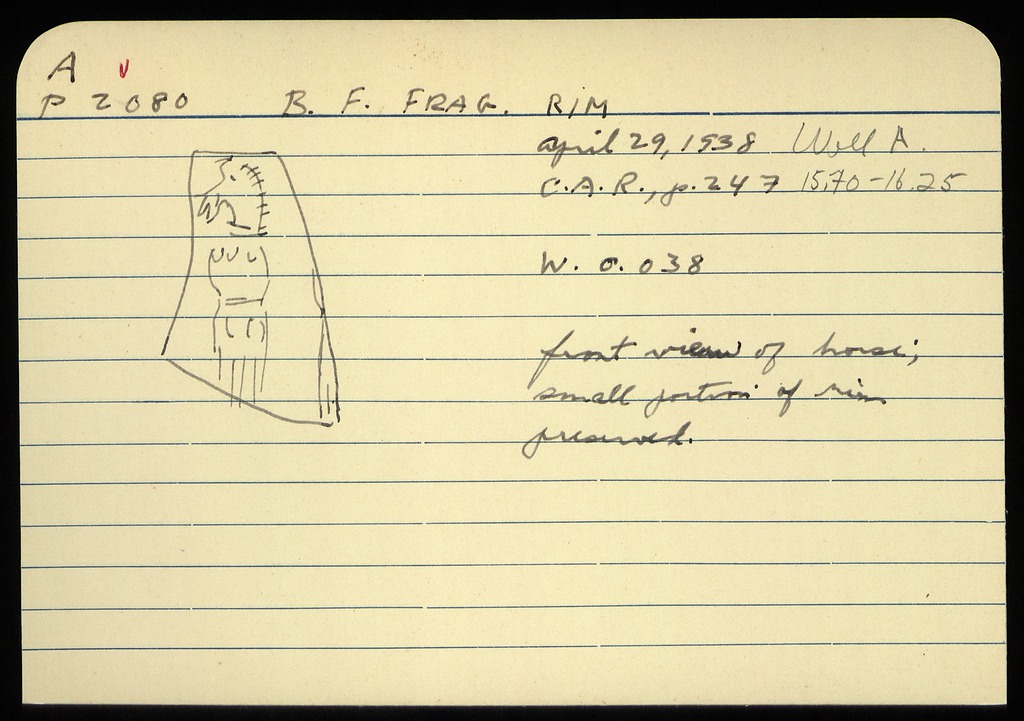 A v
P 2080 B. F. FRAG. RIM
april 29, 1938 Well A.
C.A.R., p. 247 15,70-16.25
W. 0.038
front view of horse;
small portion of rim
preserved.